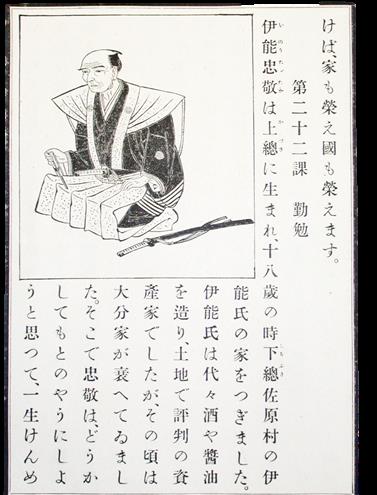 けば、家も榮え國も榮えます。
第二十二課　勤勉
伊能忠敬は上總に生まれ、十八歳の時下總佐原村の伊
能氏の家をつぎました。
伊能氏は代々酒や醬油
を造り、土地で評判の資
產家でしたが、その頃は
大分家が衰へてゐまし
た。そこで忠敬は、どうか
してもとのやうにしよ
うと思つて、一生けんめ